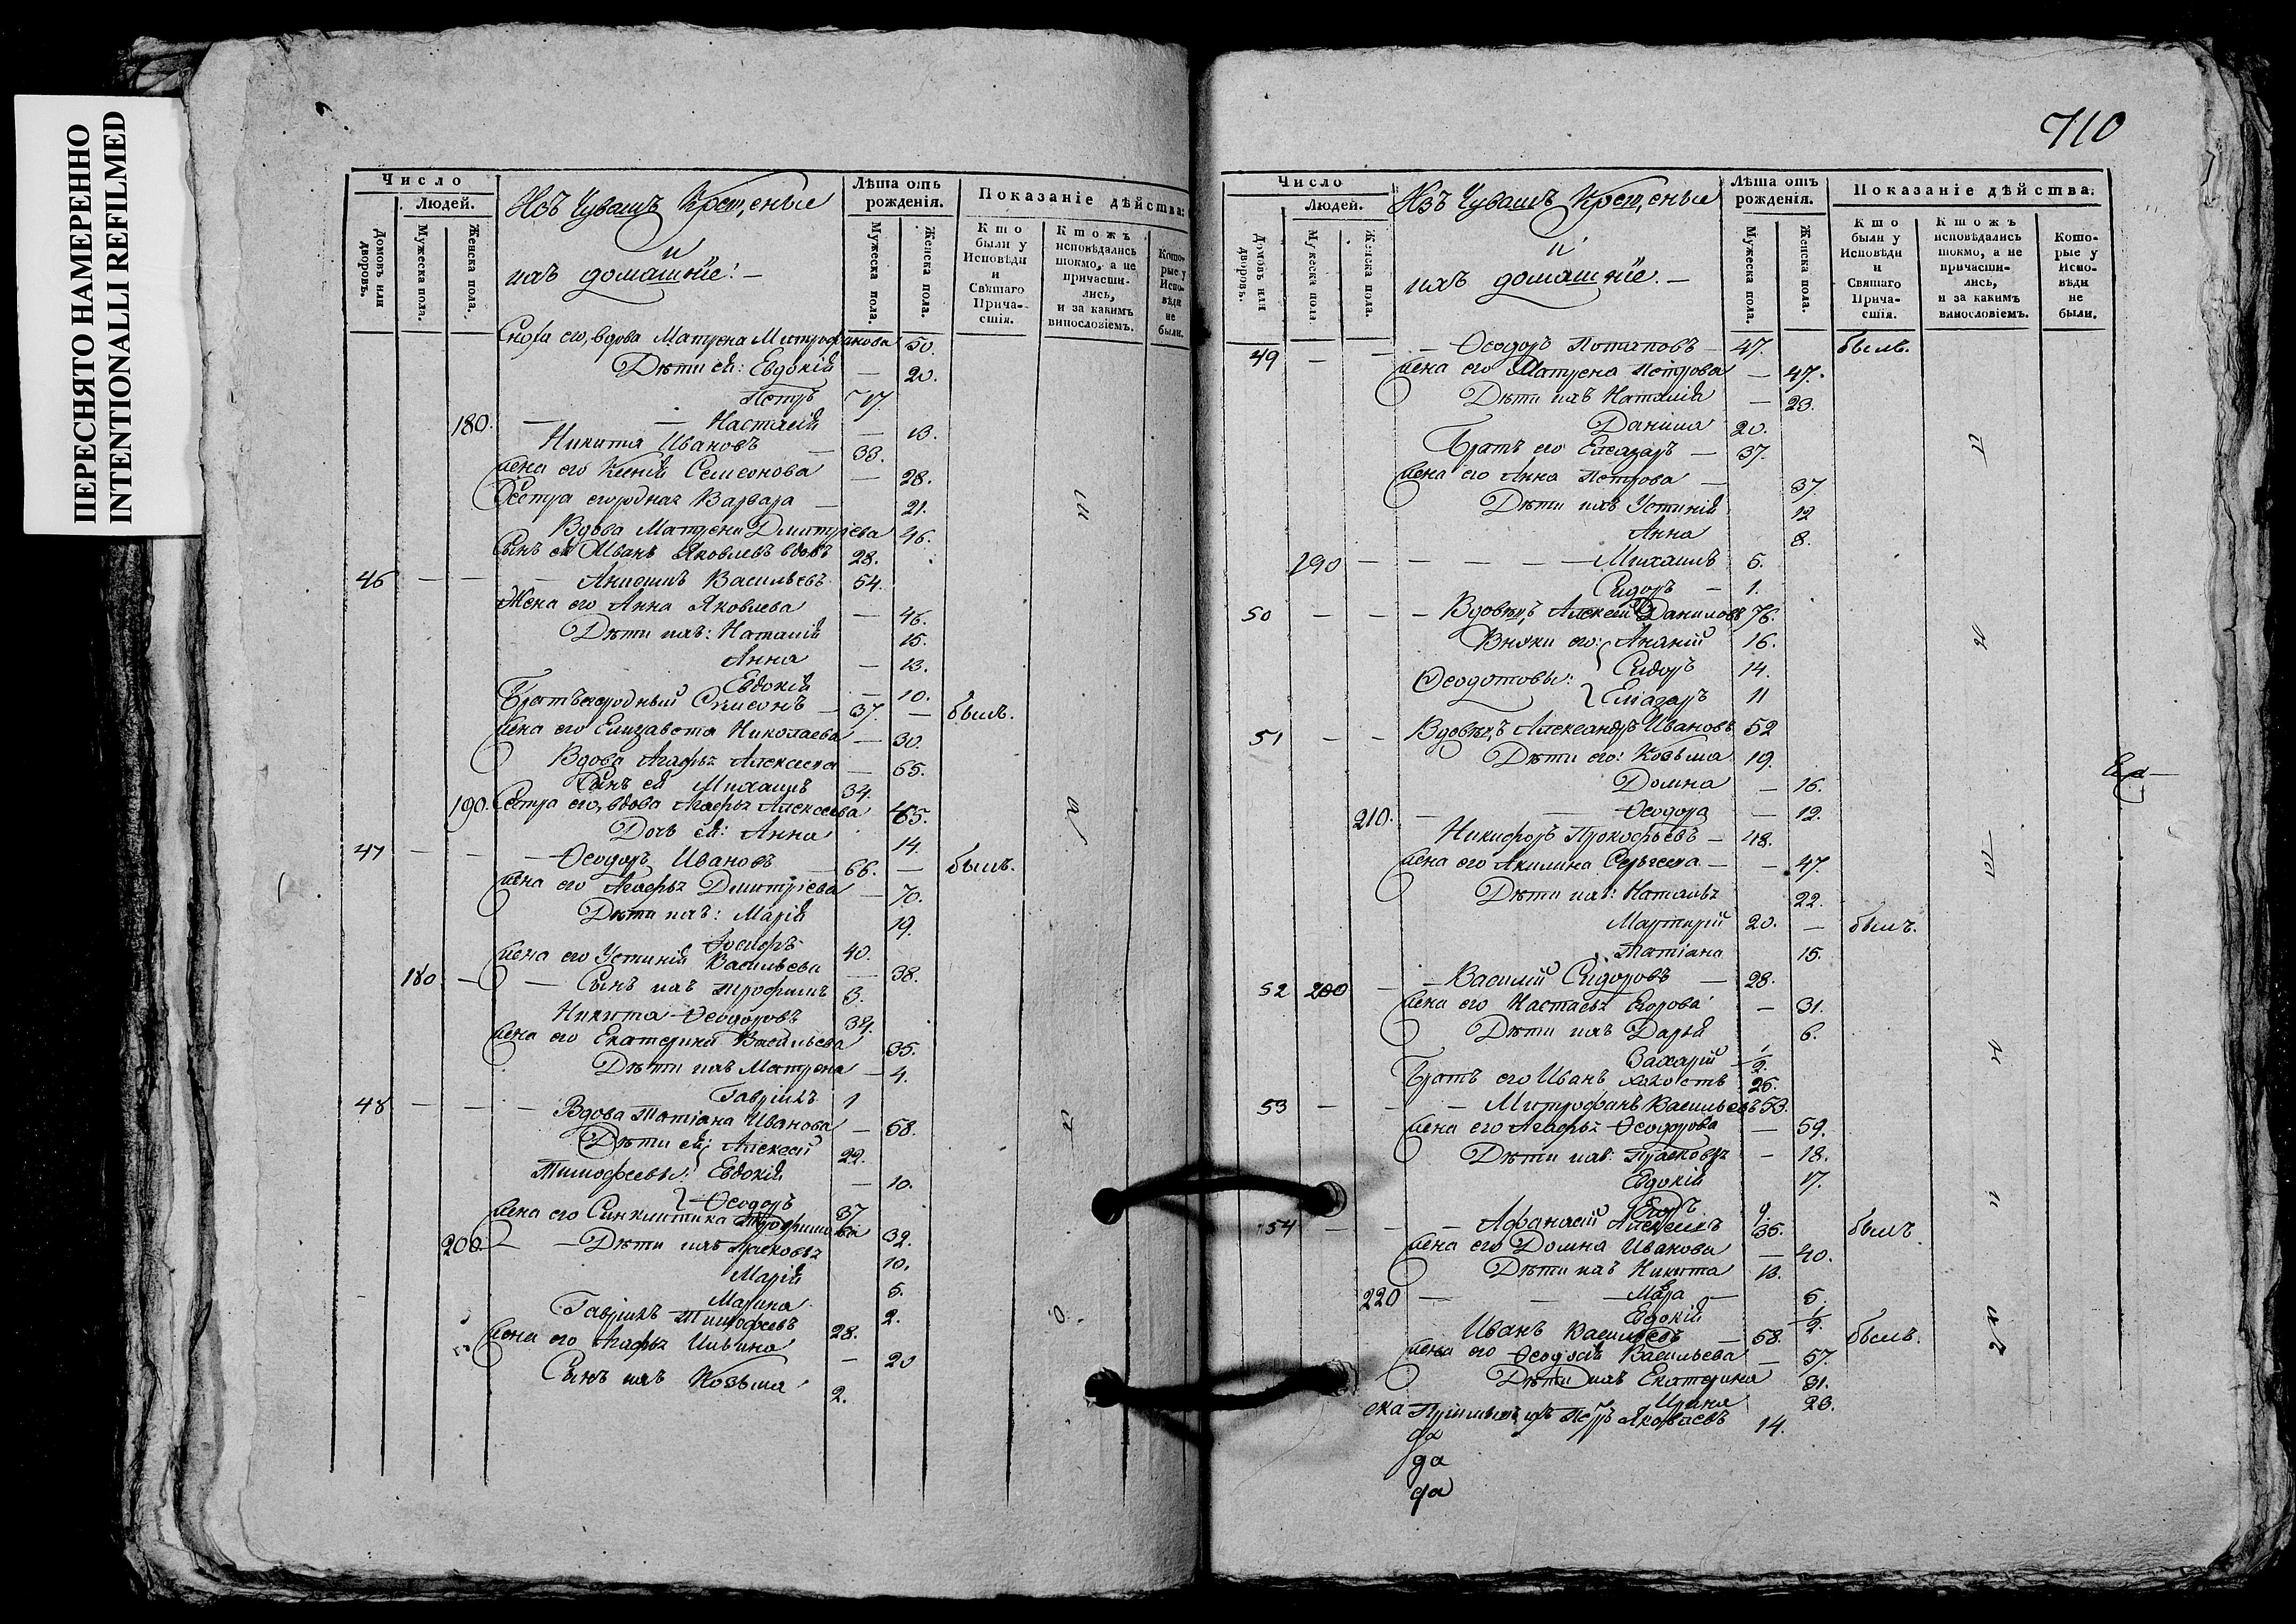 ПЕРЕСНЯТО НАМЕРЕННО
INTENTIONALLI REFILMED
Число
Людей.
Домовъ или дворовъ.
Мужеска пола.
Женска пола.
Изъ Чувашъ Крещеные
и
ихъ домашніе: —
Лѣта отъ рожденія.
Мужеска пола.
Женска пола.
Показаніе дѣйства:
Кто были у Исповѣди и Святаго Причастія.
Ктожъ исповѣдались токмо, а не причастились, и за какимъ винословіемъ.
Которые у Исповѣди не были.
Сноха его, вдова Матрена Митрофанова 50.
Дѣти ей: Евдокія — 20.
Петръ 17.
180. — — Настасія — 13.
Никита Ивановъ — 33.
жена его Ксенія Семенова — 28.
Сестра его родная Варвара — 21.
Вдова Матрена Дмитріева 46.
Сынъ ея Иванъ Яковлевъ вдовъ 28.
46 — — — Василъевъ 54.
Жена его Анна Яковлева — 46.
Дѣти ихъ: Наталія 15.
Анна — 13.
Евдокія — 10.
Братъ родный Симеонъ — 37. — былъ.
жена его Елизавета Николаева — 30.
Вдова Агафья Алексеева — 65.
Сынъ ея Михаилъ 34.
190. Сестра его, вдова Агафья Алексеева 65.
Дочь ея: Анна 14.
47 — — — Ѳеодоръ Ивановъ — 66. — былъ.
жена его Агафья Дмитріева — 70.
Дѣти ихъ: Марія 19.
Іосифъ 40.
жена его Устинія Васильева — 38.
180 — — Сынъ ихъ Трофимъ 3.
Никита Ѳеодоровъ 34.
жена его Екатерина Васильева 35.
Дѣти ихъ Матрена — 4.
Гаврілъ 1
48 — — — Вдова Татіана Иванова — 58.
Дѣти ей: Алексей 22.
Тимофеевы: Евдокія — 10.
Ѳеодоръ 37
жена его Синклитика Трофимова 32.
200 — — Дѣти ихъ Прасковья 10.
Марія 5.
Марина 2.
Гаврілъ Тимофеевъ 28.
жена его Агафья Ильина — 20
Сынъ ихъ Козьма 2.
710
Число
Людей.
Домовъ или дворовъ.
Мужеска пола.
Женска пола.
Изъ Чувашъ Крещеные
и
ихъ домашніе. —
Лѣта отъ рожденія.
Мужеска пола.
Женска пола.
Показаніе дѣйства.
Кто были у Исповѣди и Святаго Причастія.
Ктожъ исповѣдались токмо, а не причастились, и за какимъ винословіемъ.
Которые у Исповѣди не были.
49 — — — Ѳеодоръ Потаповъ — 47. былъ.
жена его Матрена Петрова — 47.
Дѣти ихъ Наталія — 23.
Данила 20.
Братъ его Елеазаръ — 37.
жена его Анна Петрова — 37.
Дѣти ихъ Устинія 12
Анна 8.
190 — — — — Михаилъ 5.
Сидоръ — 1.
50 — — — Вдовецъ Алексей Даниловъ 76.
Внуки его: Ананій 16.
Ѳеодотовы: Сидоръ 14.
Елеазаръ 11
51 — — Вдовецъ Александръ Ивановъ 52
Дѣти его: Козьма 19.
Домна — 16.
210. — — Ѳеодора — 12.
Никифоръ Прокофьевъ — 48.
жена его Акилина Сергеева — — 47.
Дѣти ихъ: Наталья 22.
Мартирій 20. — былъ.
Татіана 15.
52 200 — — Василій Сидоровъ — 28.
жена его Настасья Егорова — 31.
Дѣти ихъ Дарья 6.
Захарій — 1/2.
Братъ его Иванъ холостъ 25.
53 — — — Митрофанъ Васильевъ 53.
жена его Агафья Ѳеодорова — 59.
Дѣти ихъ: Прасковья — 18.
Евдокія 17.
Егоръ 9
54 — — — Афанасій Алексеевъ 35. былъ.
жена его Домна Иванова — 40.
Дѣти ихъ Никита 13.
220 — — Мавра — 5.
Евдокія 1/2.
Иванъ Васильевъ — 58. былъ.
жена его Ѳеодосья Васильева — 57.
Дѣти ихъ Екатерина 31.
Ирина 23.
Петръ Яковлевъ 14.
да
да
да